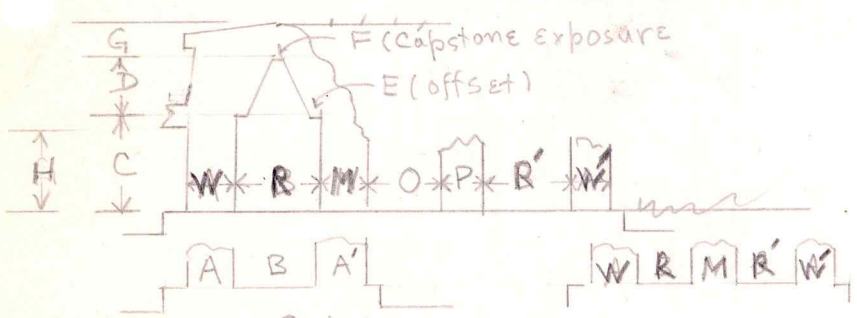 G
F (Cápstone Exposure
D
E (offset)
H C W R M O P R' W'
A B A'
W R M R' W'